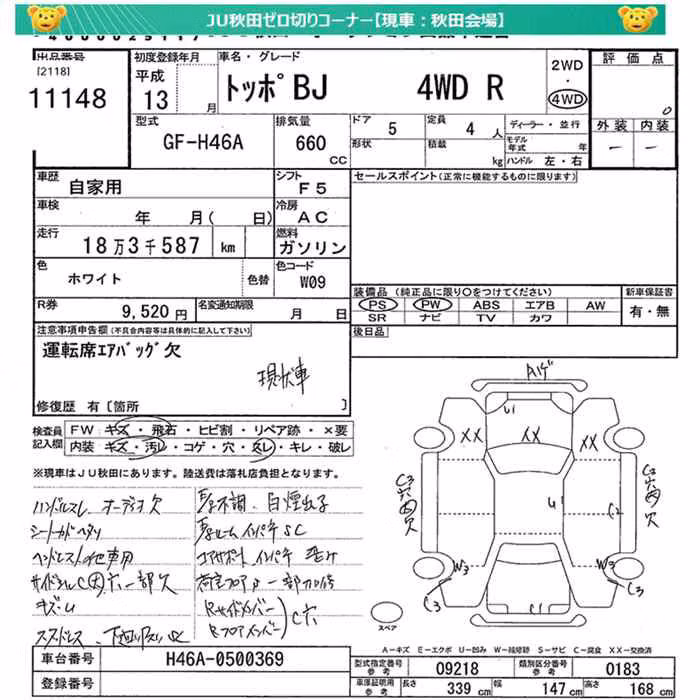 JU秋田ゼロ切りコーナー【現車：秋田会場】
出品番号
[2118]
11148
初度登録年月
平成
13 月
車名・グレード
トッポBJ 4WD R
2WD
・
4WD
評価点
0
外装 内装
― ―
型式
GF-H46A
排気量
660
CC
ドア 5 定員 4 人
形状 積載 kg
ディーラー・並行
モデル年式 年
ハンドル 左・右
車歴
自家用
シフト
F5
セールスポイント(正常に機能するものに限ります)
車検
年 月( 日)
冷房
AC
走行
18万3千587 km
燃料
ガソリン
色
ホワイト
色替
色コード
W09
装備品 (純正品に限り○をつけてください)
PS PW ABS エアB AW
SR ナビ TV カワ
新車保証書
有・無
R券
9,520円
名変通知期限
月 日
後日品
注意事項申告欄(不具合内容等は具体的に記入して下さい)
運転席エアバッグ欠
現状車
修復歴 有 [箇所 ]
検査員
記入欄
FW キズ・飛石・ヒビ割・リペア跡・×要
内装 キズ・汚レ・コゲ・穴・スレ・キレ・破レ
※現車はJU秋田にあります。陸送費は落札店負担となります。
ハンドルスレ オーディオ欠
シートカドヘタリ
ヘッドレスト他車用
キズ・U
不調・白煙出子
コアサポート
Rサイドメンバー
Rフロアメンバー
C穴
Aアゲ
U1
XX
XX
XX
U1
C2
W3
W3
C3
C3
C1
スペア
A－キズ E－エクボ U－凹み W－板跡修 S－サビ C－腐食 XX－交換済
車台番号
H46A-0500369
登録番号
型式指定番号
参考
09218
類別区分番号
参考
0183
車庫証明用
参考
長さ 339 cm 幅 147 cm 高さ 168 cm